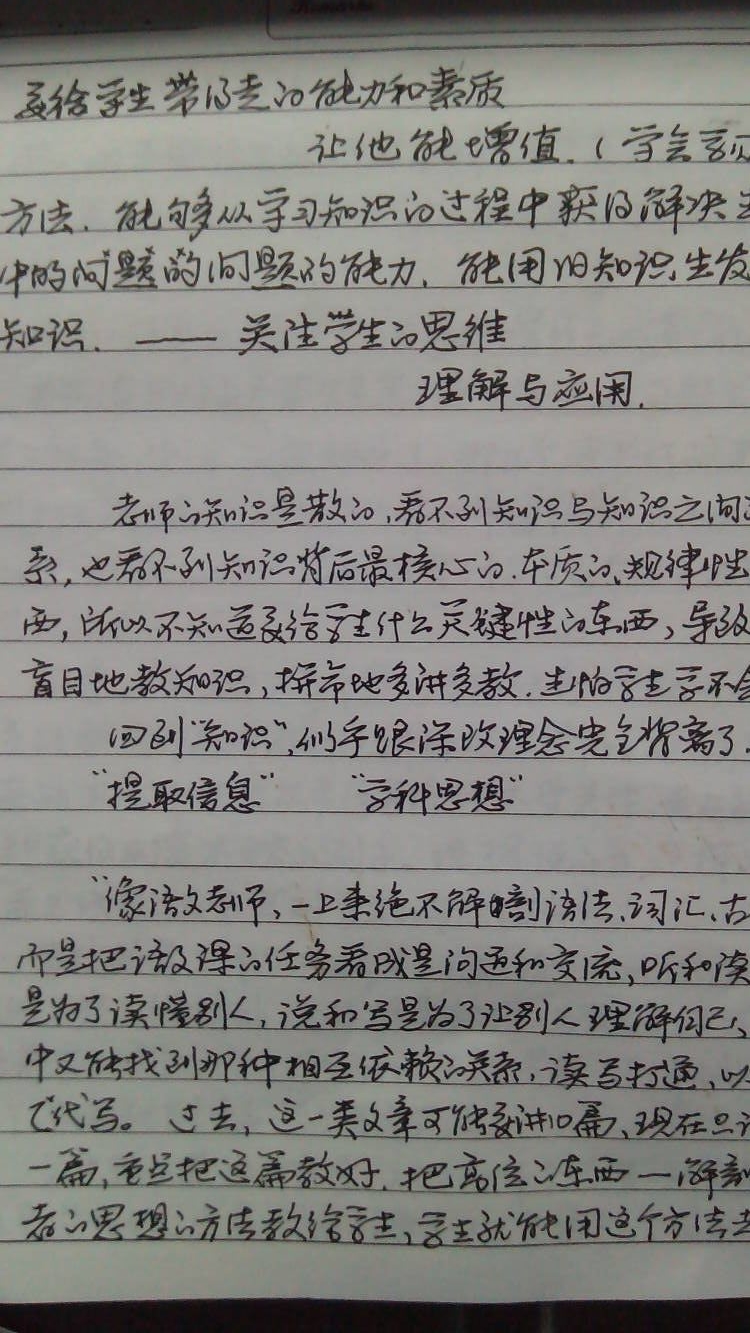 要给学生带得走的能力和素质
让他能增值.（学会
方法.能够从学习知识的过程中获得解决
中的问题的问题的能力.能用旧知识生发
知识.——关注学生的思维
理解与应用.
老师的知识是散的,看不到知识与知识之间
系,也看不到知识背后最核心的.本质的、规律性
西,所以不知道要给学生什么关键性的东西,导致
盲目地教知识,拼命地多讲多教.生怕学生学不会
回到“知识”,似乎跟课改理念完全背离了.
“提取信息” “学科思想”
“像语文老师,一上来绝不解剖语法、词汇、古
而是把语文课的任务看成是沟通和交流,听和读
是为了读懂别人,说和写是为了让别人理解自己、
中又能找到那种相互依赖的关系,读写打通,以
代写。过去,这一类文章可能要讲10篇、现在只
一篇,重点把这篇教好.把高位的东西—解剖
者的思想的方法教给学生,学生就能用这个方法去